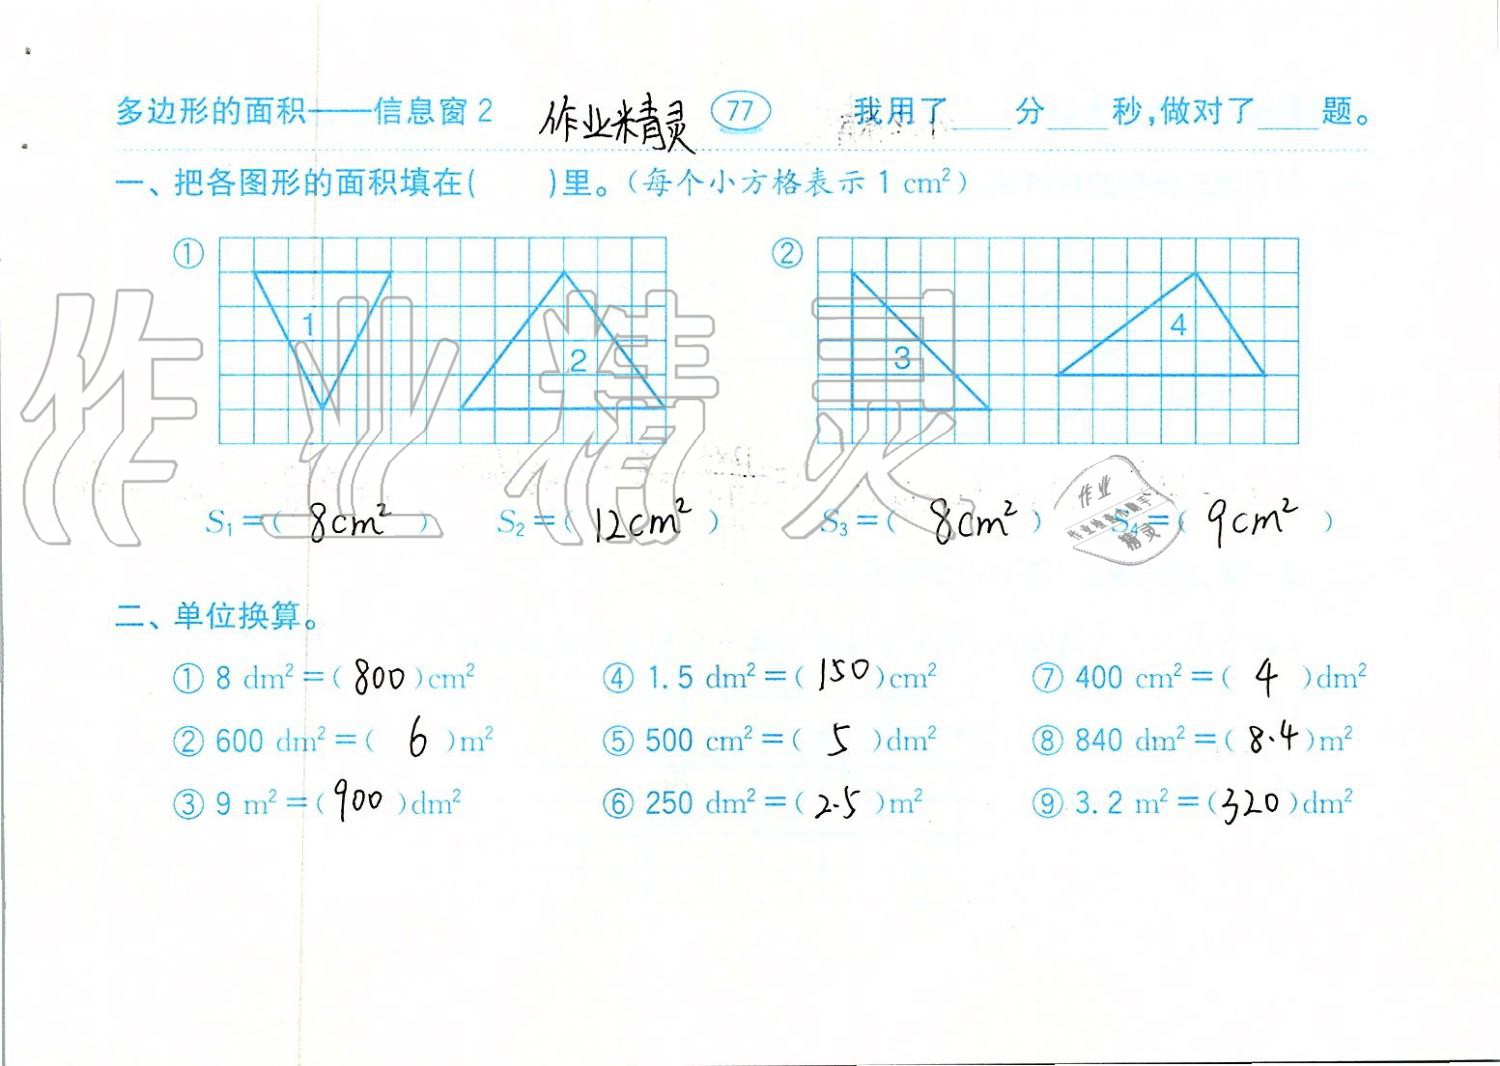 多边形的面积——信息窗2 作业精灵 77 我用了____分____秒,做对了____题。
一、把各图形的面积填在( )里。(每个小方格表示1 cm²)
① ②
1 2 3 4
作业精灵
S₁=( 8cm² ) S₂=( 12cm² ) S₃=( 8cm² ) S₄=( 9cm² )
作业
精灵
二、单位换算。
① 8 dm²=( 800 )cm² ④ 1.5 dm²=( 150 )cm² ⑦ 400 cm²=( 4 )dm²
② 600 dm²=( 6 )m² ⑤ 500 cm²=( 5 )dm² ⑧ 840 dm²=( 8.4 )m²
③ 9 m²=( 900 )dm² ⑥ 250 dm²=( 2.5 )m² ⑨ 3.2 m²=( 320 )dm²